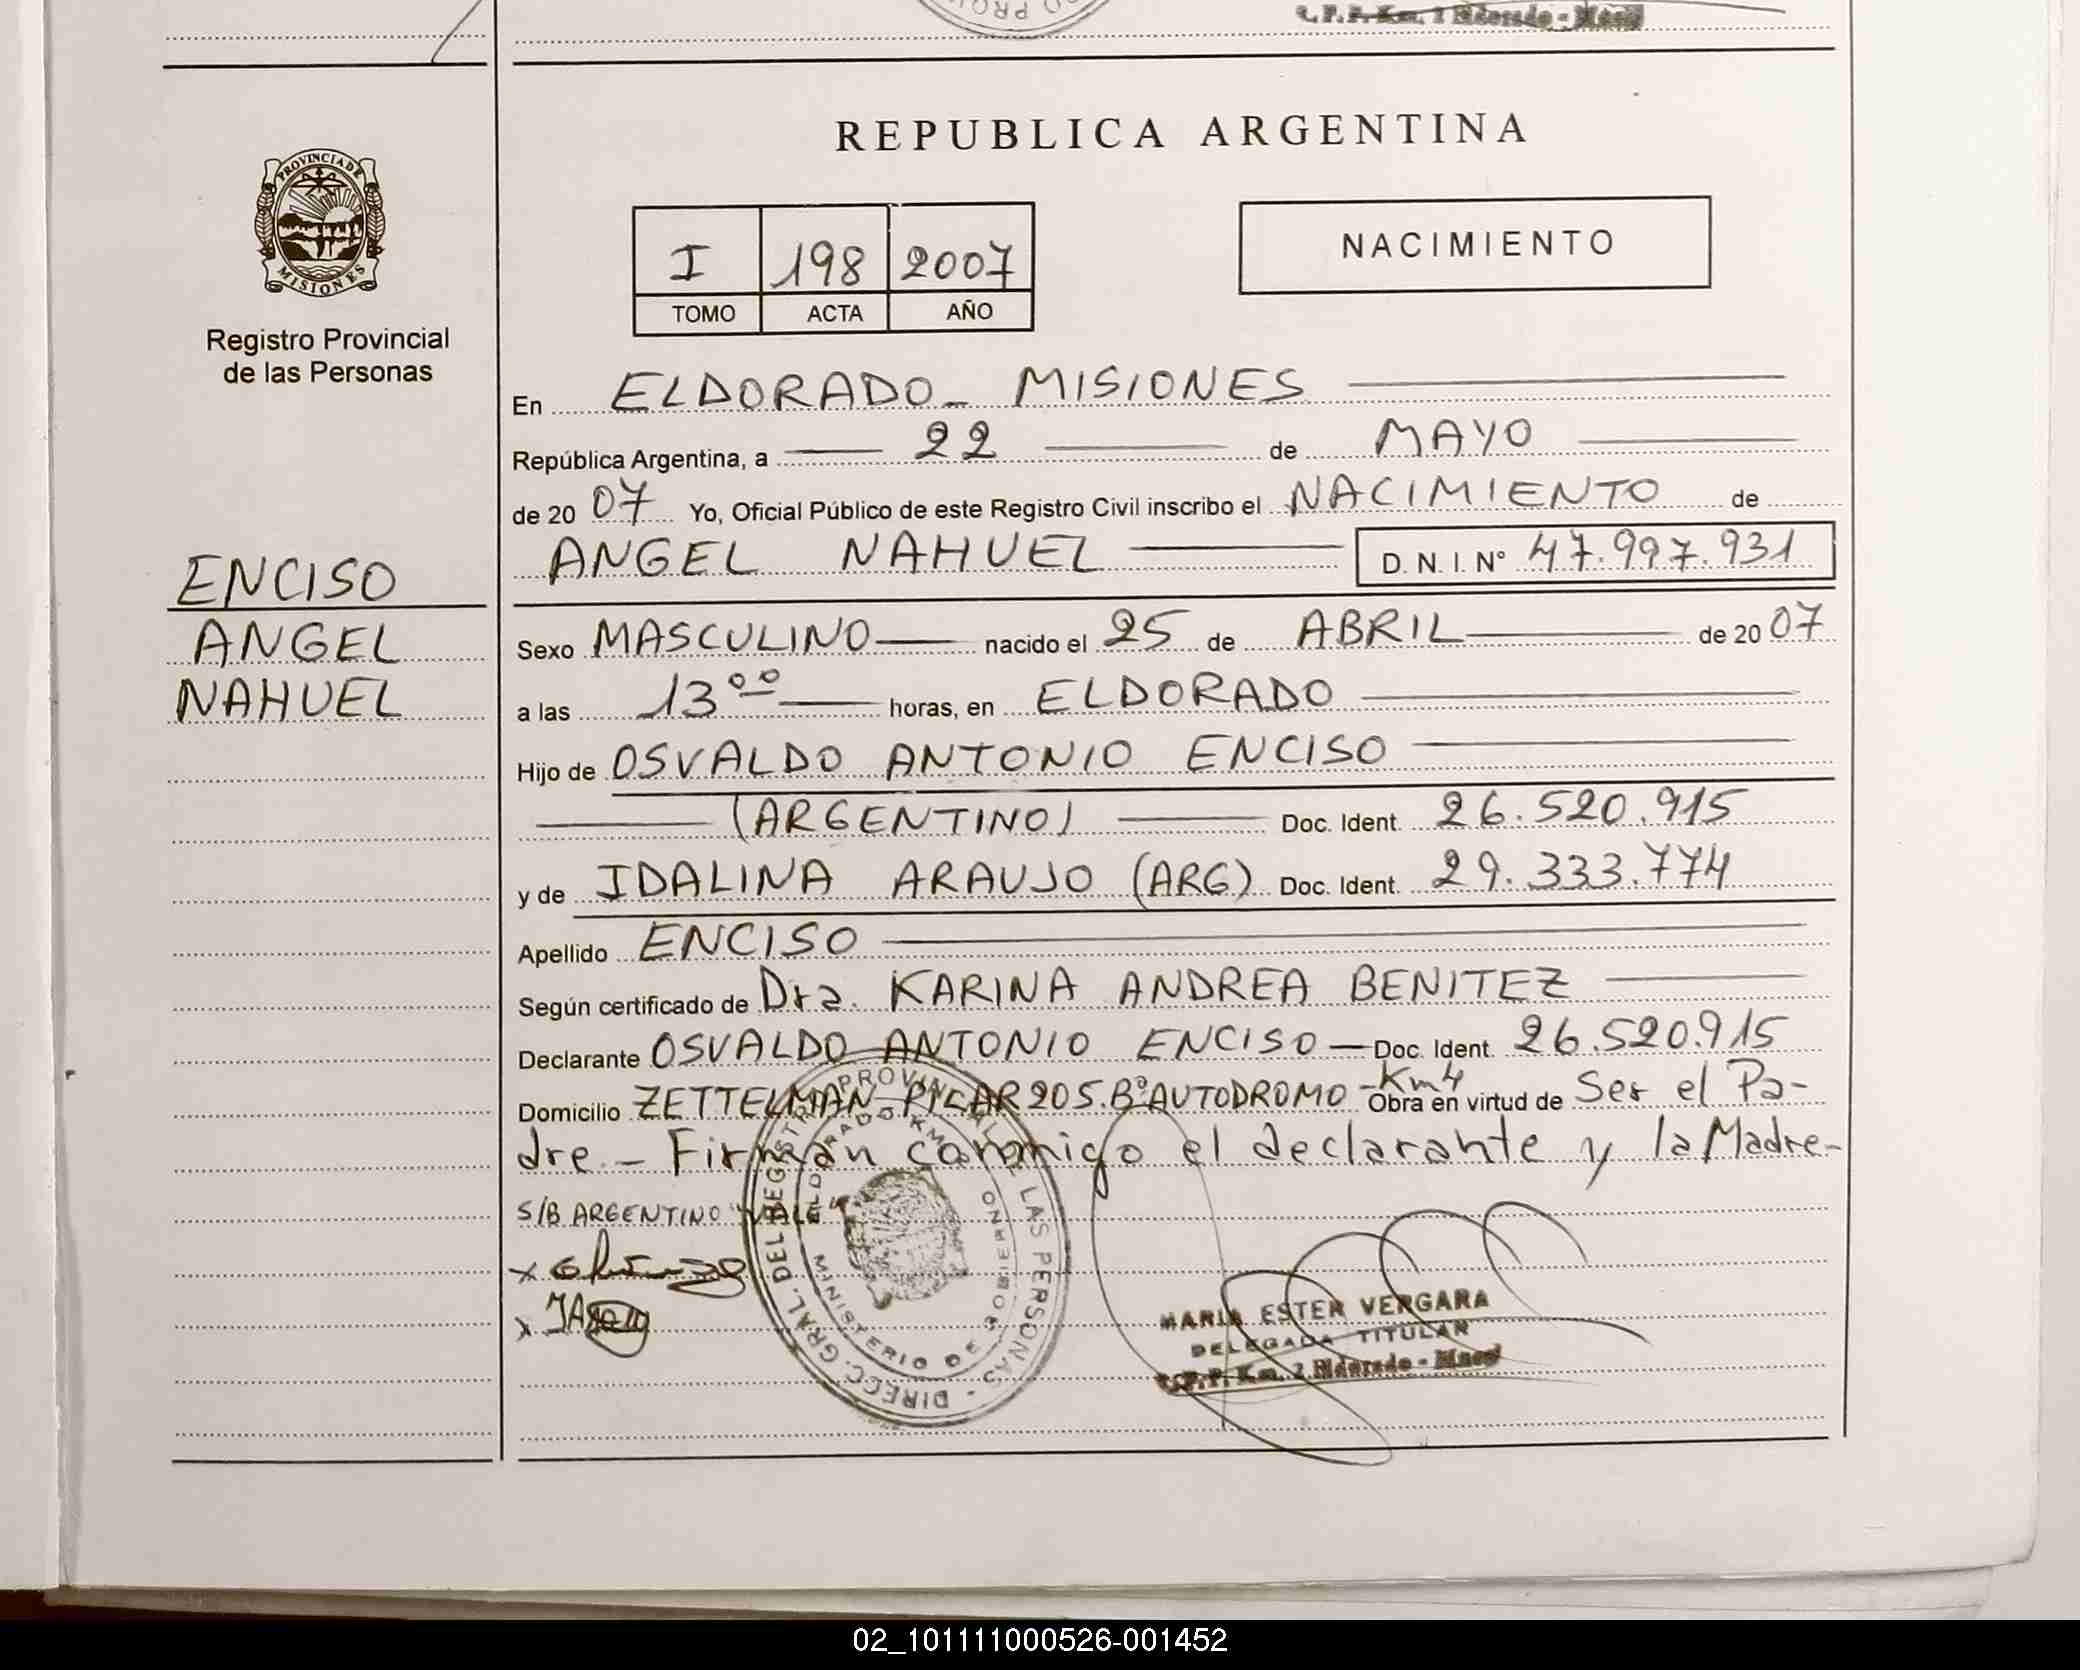 PROVINCIA DE
MISIONES
Registro Provincial
de las Personas
ENCISO
ANGEL
NAHUEL
REPUBLICA ARGENTINA
I 198 2007
TOMO ACTA AÑO
NACIMIENTO
En ELDORADO_ MISIONES
República Argentina, a 22 de MAYO
de 2007 Yo, Oficial Público de este Registro Civil inscribo el NACIMIENTO de
ANGEL NAHUEL D. N. I. Nº 47.997.931
Sexo MASCULINO nacido el 25 de ABRIL de 2007
a las 13⁰⁰ horas, en ELDORADO
Hijo de OSVALDO ANTONIO ENCISO
(ARGENTINO) Doc. Ident. 26.520.915
y de IDALINA ARAUJO (ARG) Doc. Ident. 29.333.774
Apellido ENCISO
Según certificado de Dra. KARINA ANDREA BENITEZ
Declarante OSVALDO ANTONIO ENCISO — Doc. Ident. 26.520.915
Domicilio ZETTELMAN PICAR 205. Bº AUTODROMO - Km 4 Obra en virtud de Ser el Pa-
dre._ Firman conmigo el declarante y la Madre-
S/B ARGENTINO "VALE"
DIRECC. GRAL. DEL REGISTRO PROVINCIAL DE LAS PERSONAS -
ELDORADO KM
MINISTERIO DE GOBIERNO
MARIA ESTER VERGARA
DELEGADA TITULAR
R.P.P. Km. 2 Eldorado - Mnes
02_101111000526-001452